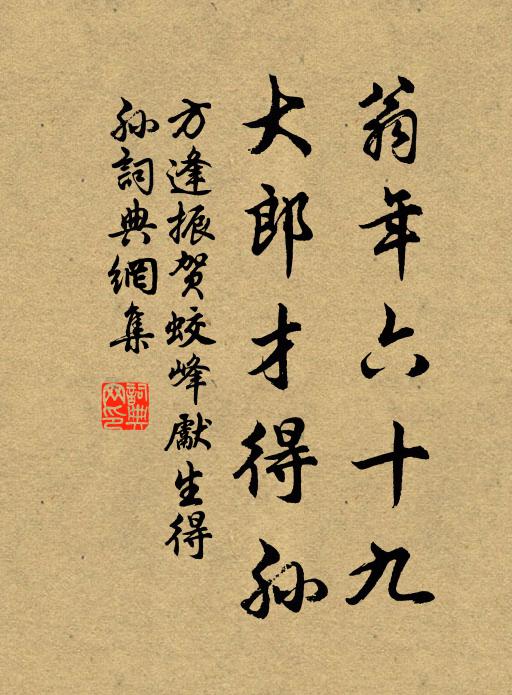 翁年六十九
大郎才得孙
方逢振贺蛟峰献生得
孙詞典網集
詞典
网印